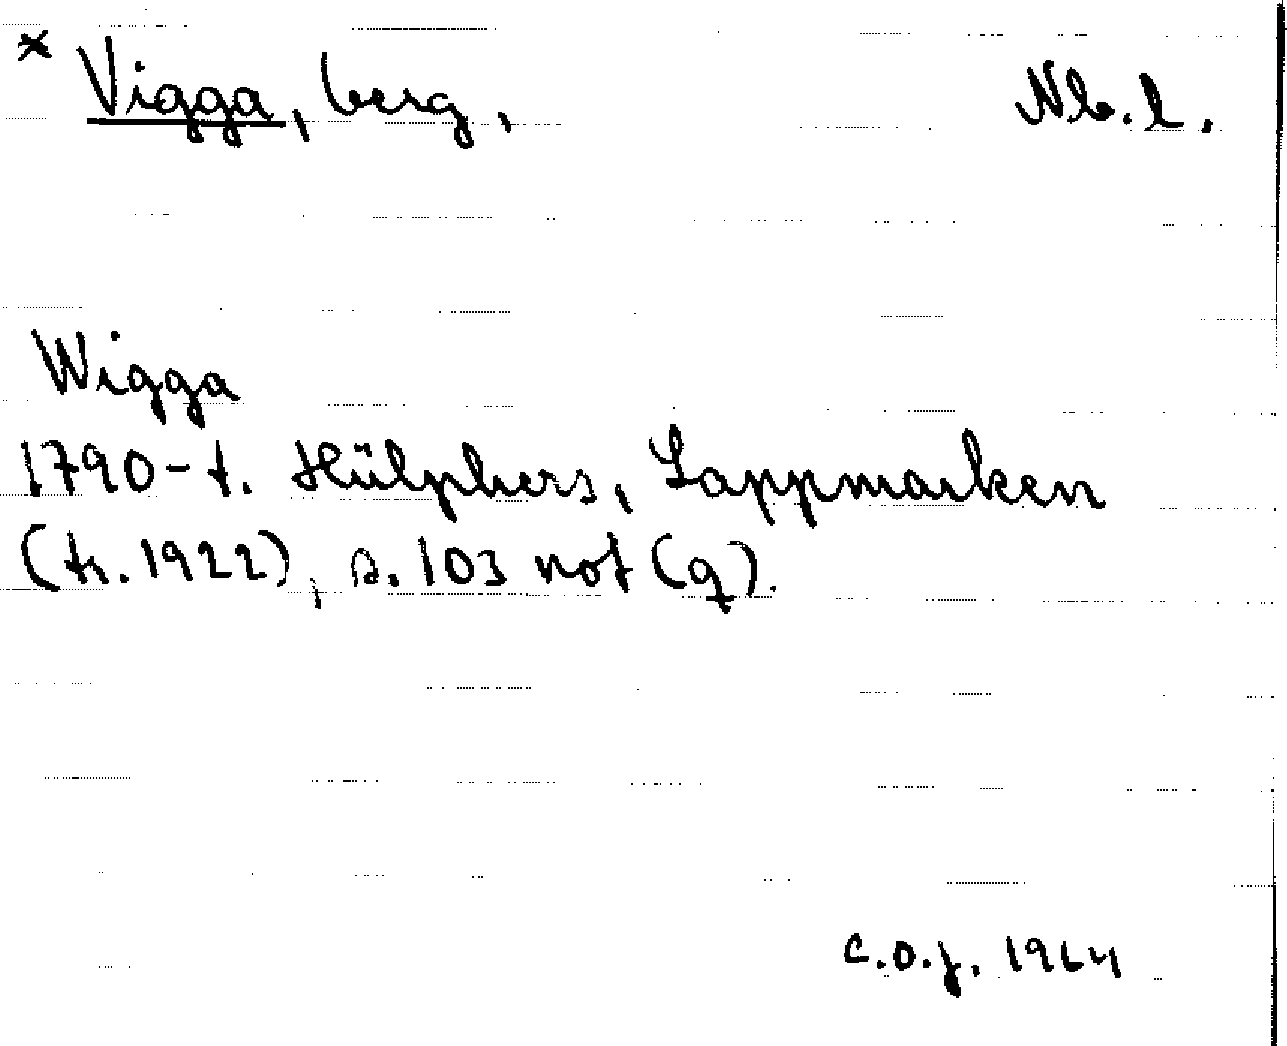 × Vigga, berg, Nb.l.
Wigga
1790-t. Hülphers, Lappmarken
(tr. 1922), s. 103 not (q).
C.O.J. 1964